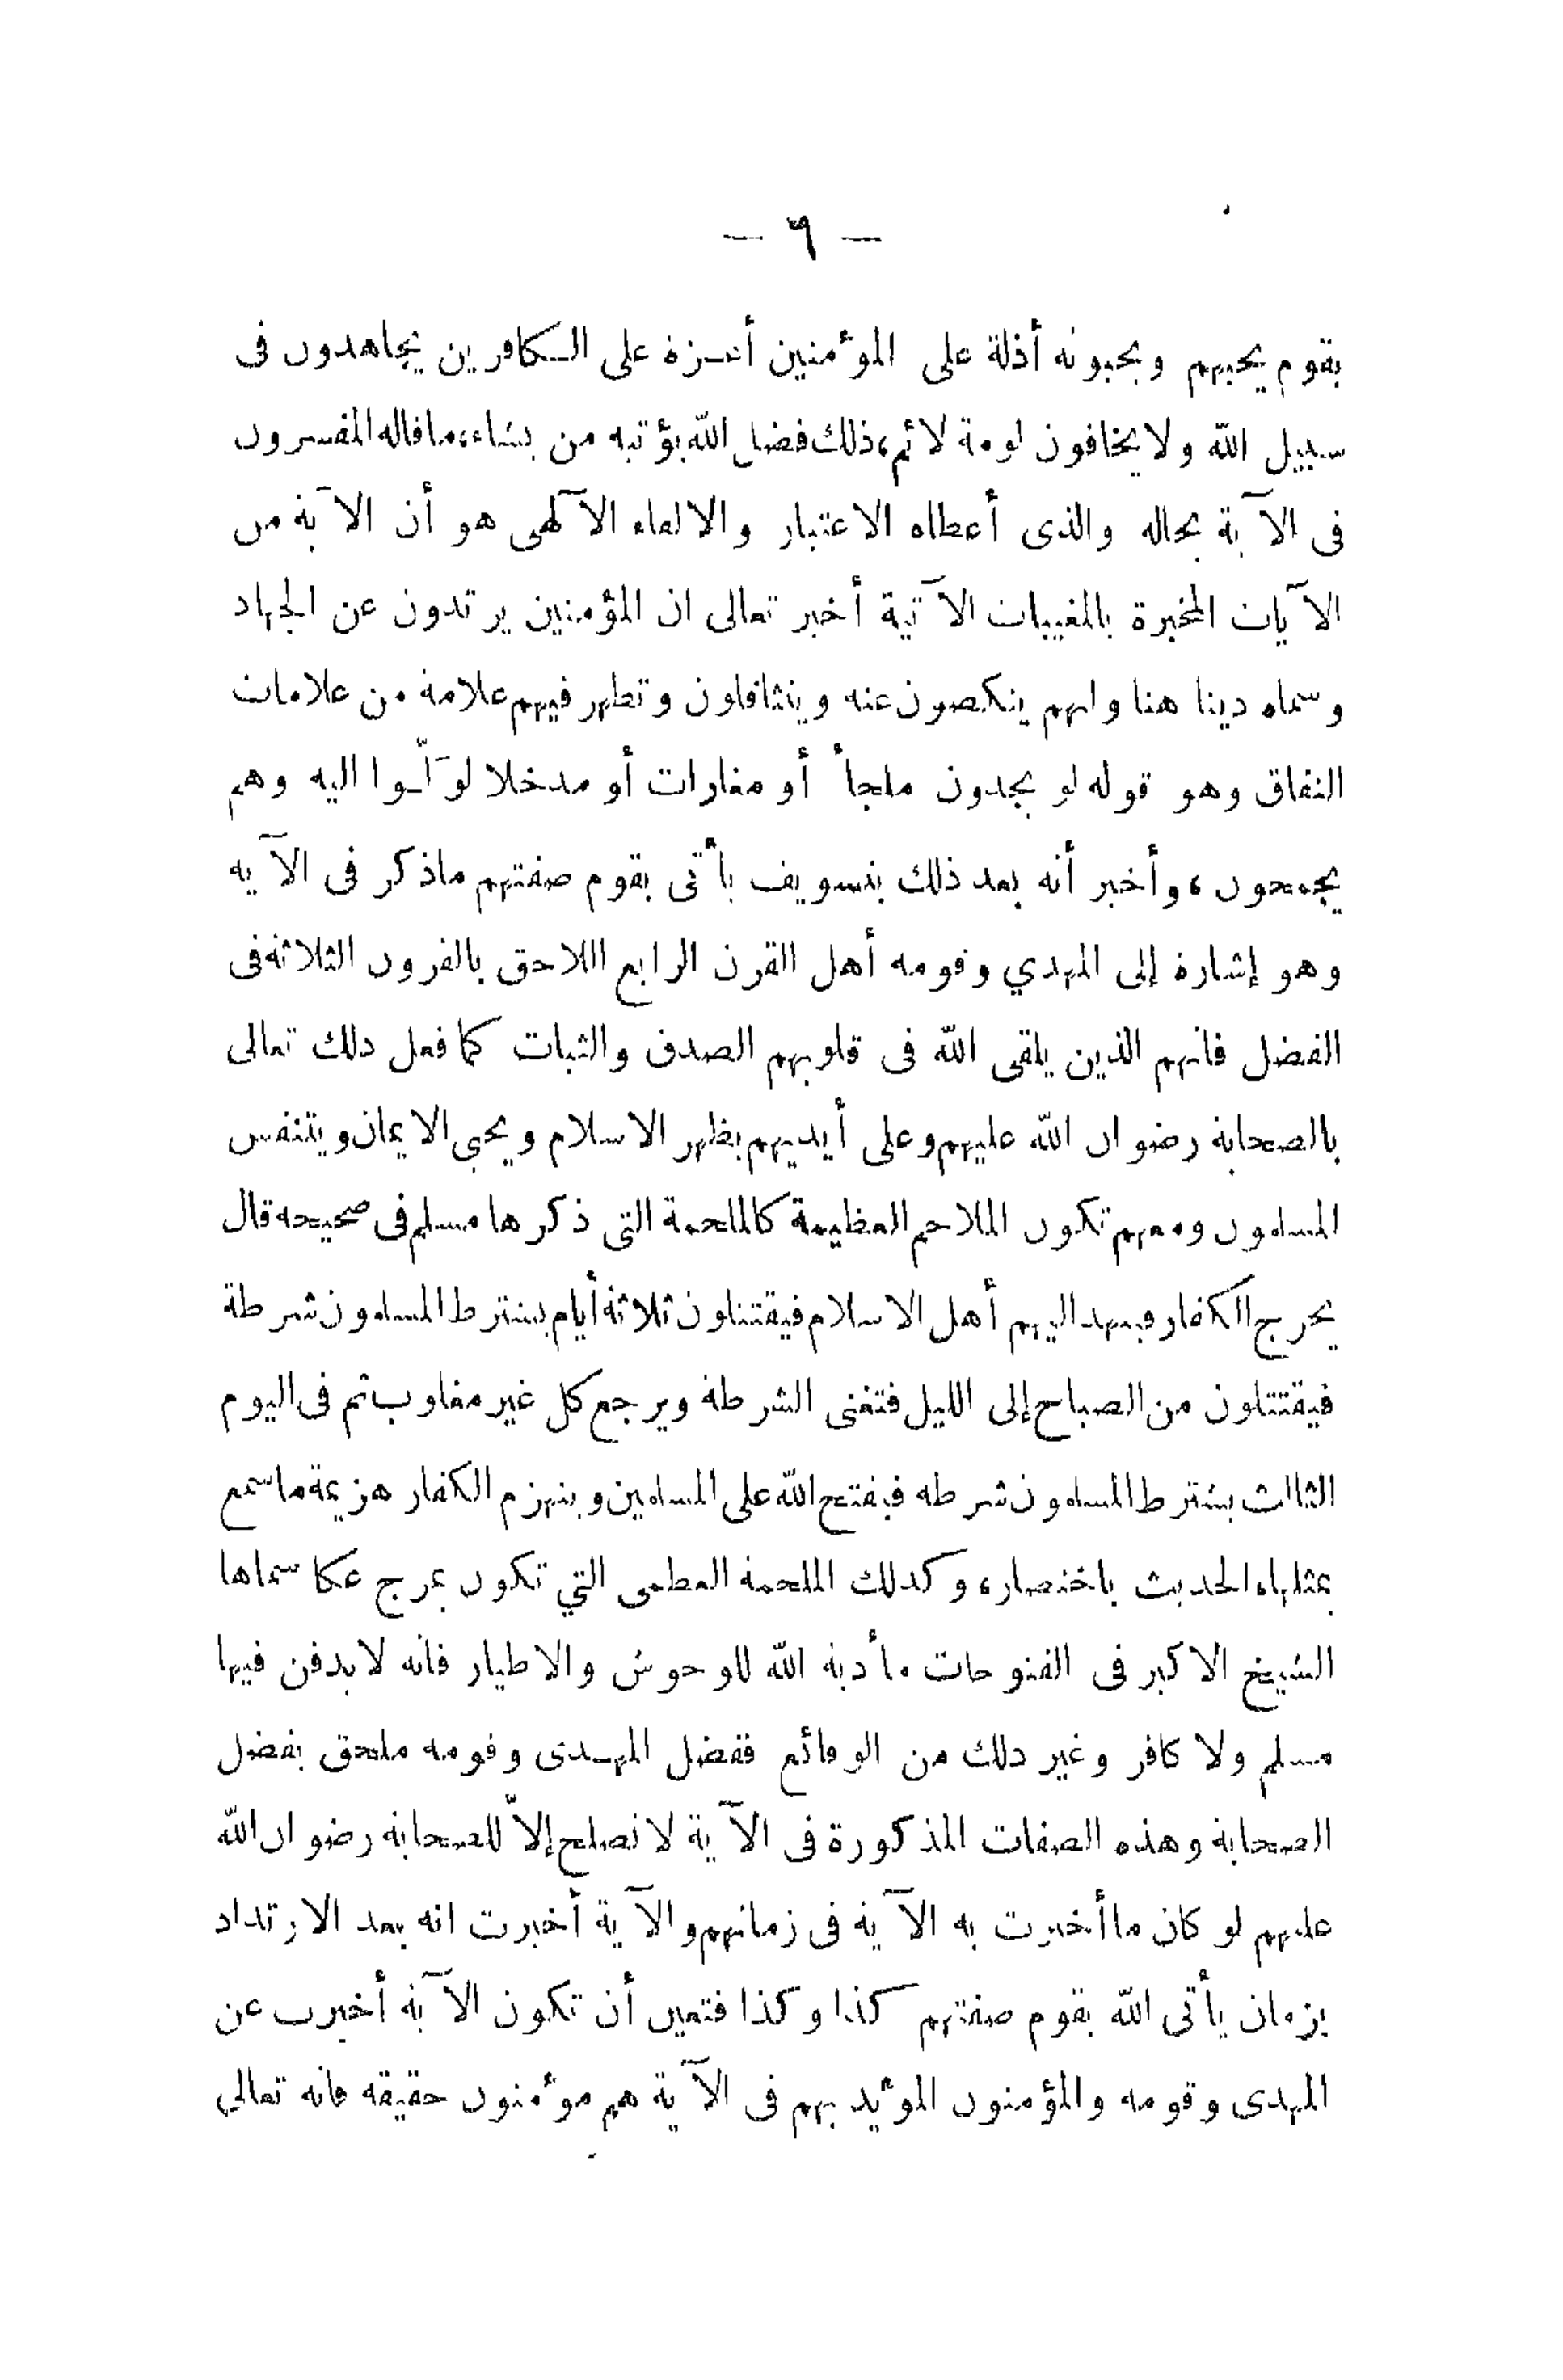 — ٦ —
بقوم يحبهم ويحبونه أذلة على المؤمنين أعــزة على الــكافرين يجاهدون فى
سبيل الله ولا يخافون لومة لائم، ذلك فضل الله يؤتيه من يشاء، ما قاله المفسرون
فى الآية بحاله والذى أعطاه الاعتبار والالقاء الآلهى هو أن الآية من
الآيات المخبرة بالمغيبات الآتية أخبر تعالى ان المؤمنين يرتدون عن الجهاد
وسماه دينا هنا وانهم ينكصون عنه ويتثاقلون وتظهر فيهم علامة من علامات
النفاق وهو قوله لو يجدون ملجأ أو مغارات أو مدخلا لوَلَّــوا اليه وهم
يجمحون، وأخبر أنه بعد ذلك بتسويف يأتى بقوم صفتهم ماذكر فى الآية
وهو إشارة إلى المهدي وقومه أهل القرن الرابع اللاحق بالقرون الثلاثة فى
الفضل فانهم الذين يلقى الله فى قلوبهم الصدق والثبات كما فعل ذلك تعالى
بالصحابة رضوان الله عليهم وعلى أيديهم يظهر الاسلام ويحيى الايمان ويتنفس
المسلمون ومعهم تكون الملاحم العظيمة كالملحمة التى ذكرها مسلم فى صحيحه قال
يخرج الكفار فينهد اليهم أهل الاسلام فيقتتلون ثلاثة أيام يشترط المسلمون شرطة
فيقتتلون من الصباح إلى الليل فتفنى الشرطة ويرجع كل غير مغلوب ثم فى اليوم
الثالث يشترط المسلمون شرطه فيفتح الله على المسلمين وينهزم الكفار هزيمة ما سمع
بمثلها، الحديث باختصار، وكذلك الملحمة العظمى التي تكون بمرج عكا سماها
الشيخ الاكبر فى الفتوحات مأدبة الله للوحوش والاطيار فانه لا يدفن فيها
مسلم ولا كافر وغير ذلك من الوقائع ففضل المهــدى وقومه ملحق بفضل
الصحابة وهذه الصفات المذكورة فى الآية لا تصلح إلاّ للصحابة رضوان الله
عليهم لو كان ما أخبرت به الآية فى زمانهم والآية أخبرت انه بعد الارتداد
بزمان يأتى الله بقوم صفتهم كذا وكذا فتعين أن تكون الآية أخبرت عن
المهدى وقومه والمؤمنون المؤيد بهم فى الآية هم مؤمنون حقيقه فانه تعالى